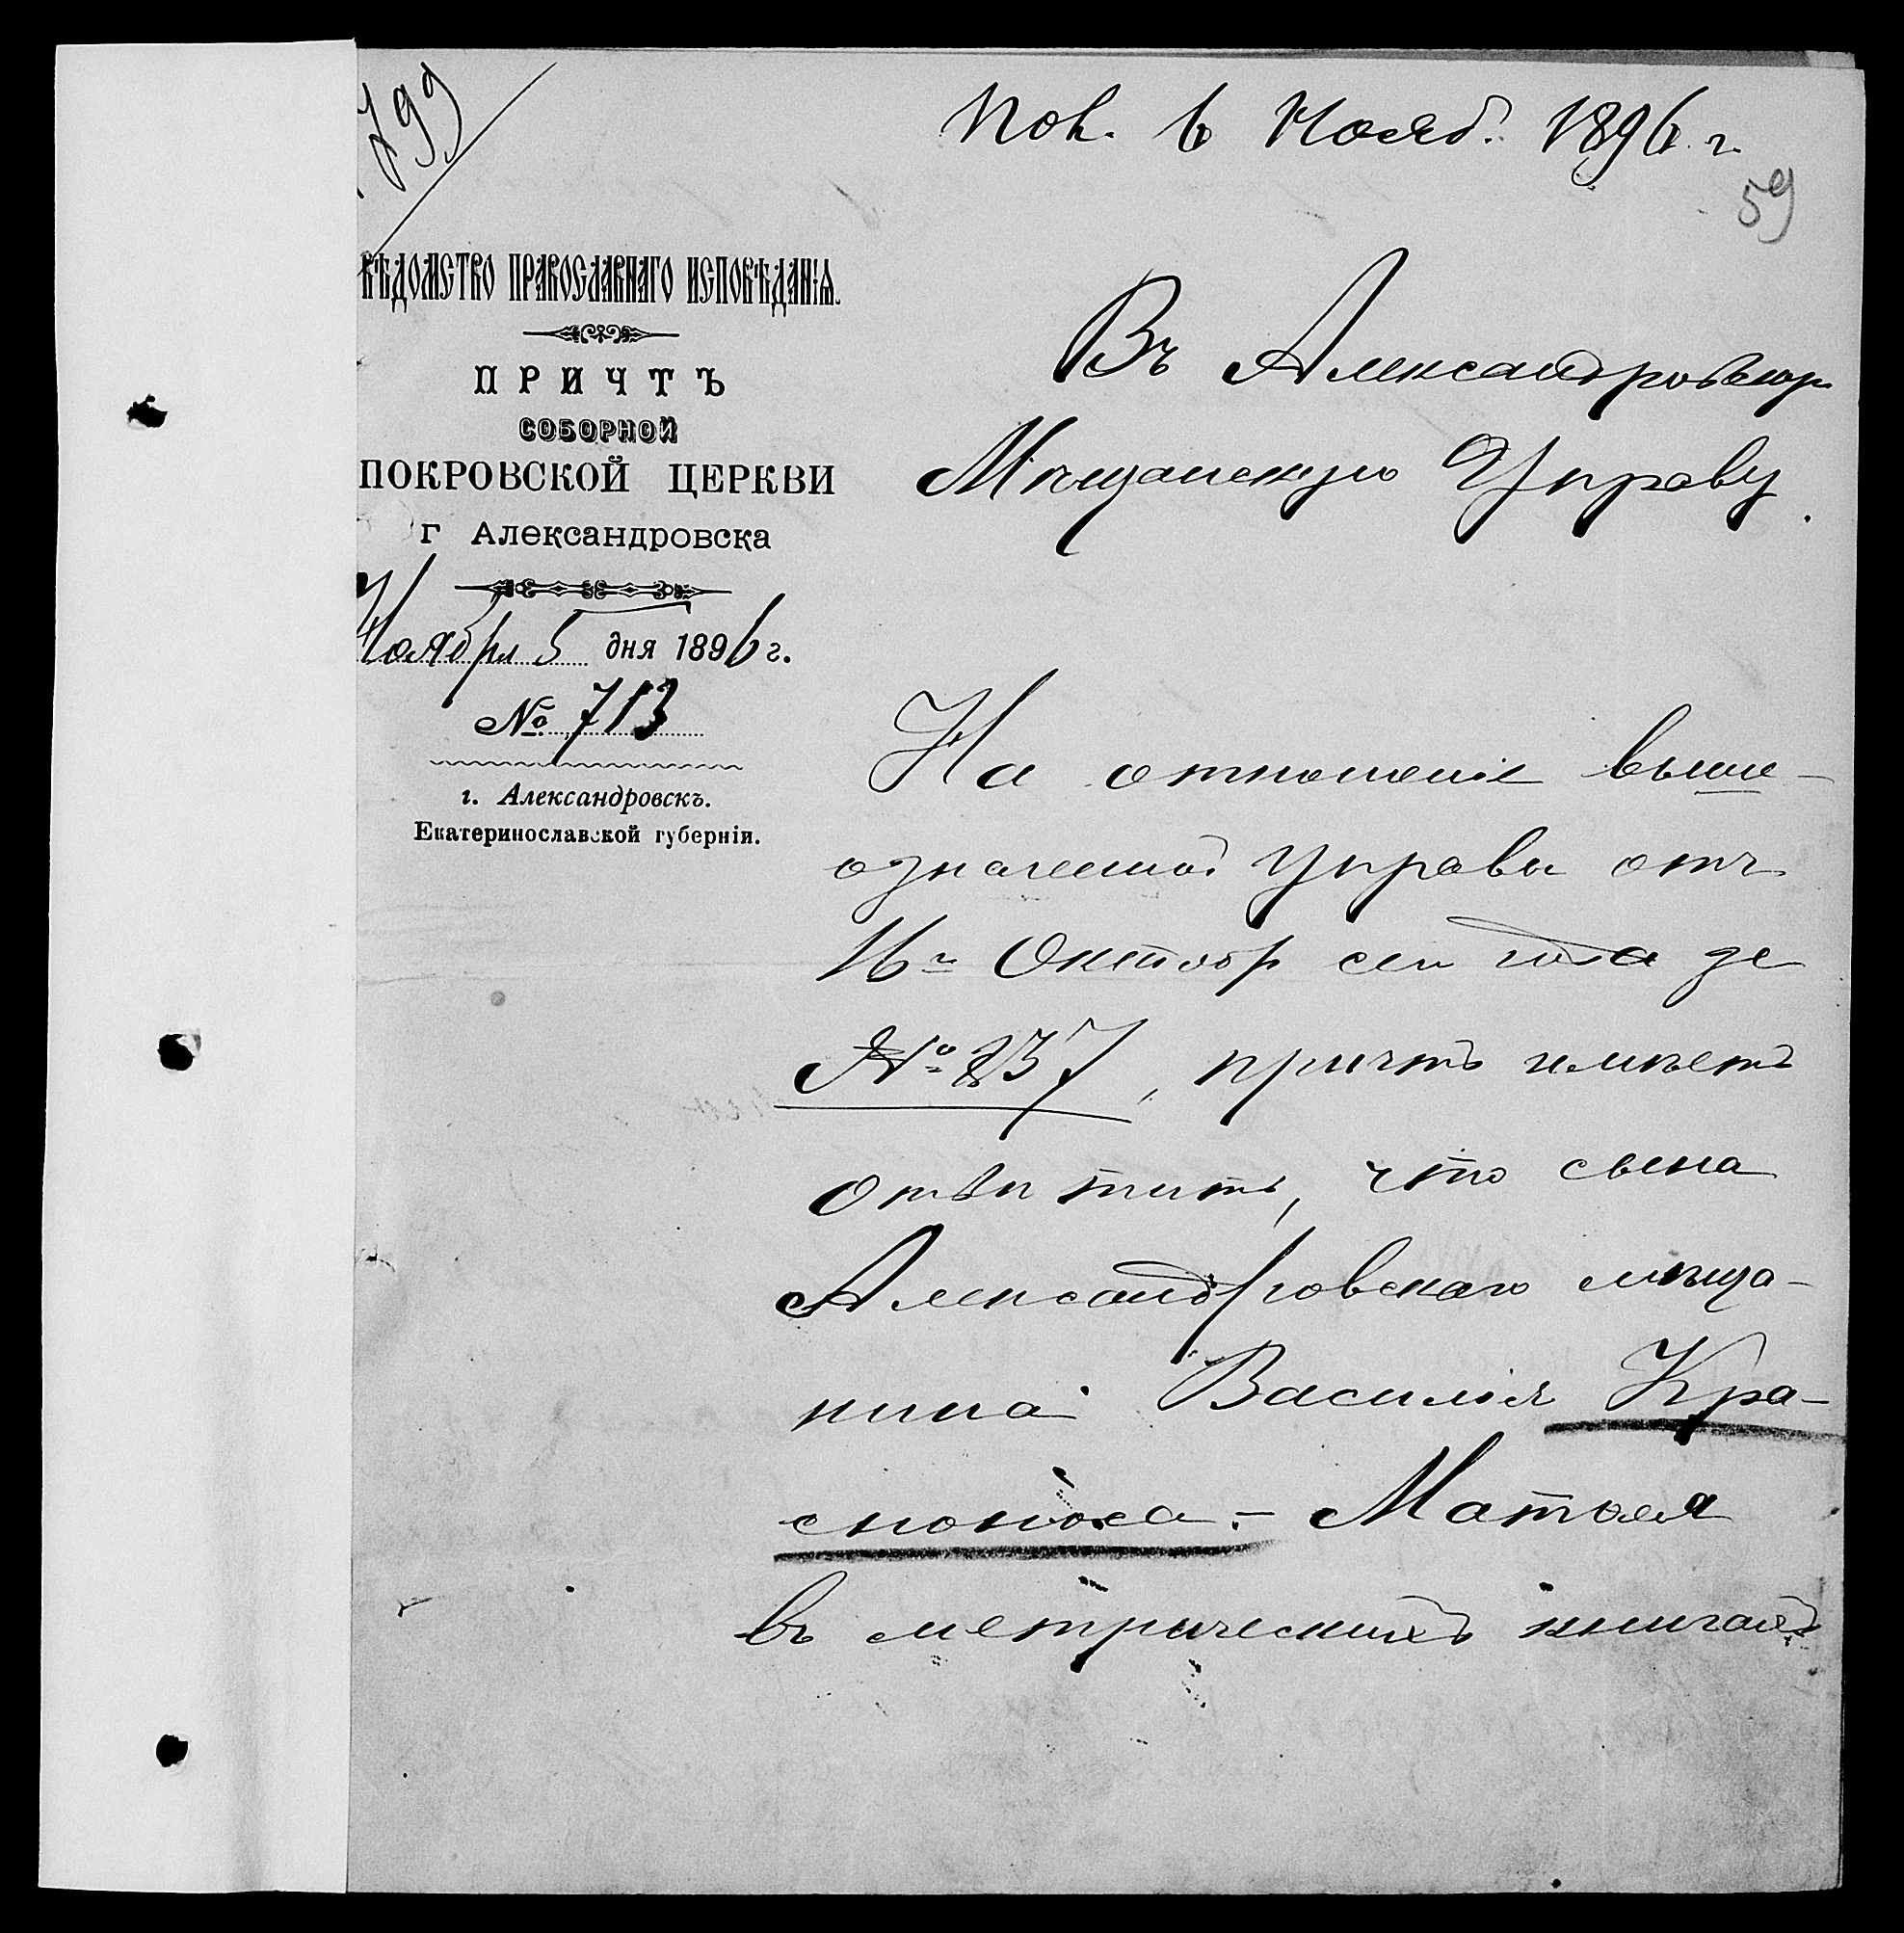 799
Пол. 6 Нояб. 1896 г.
59
ВѢДОМСТВО ПРАВОСЛАВНАГО ИСПОВѢДАНІЯ.
ПРИЧТЪ
СОБОРНОЙ
ПОКРОВСКОЙ ЦЕРКВИ
г Александровска
Ноября 5 дня 1896 г.
№ 713
г. Александровскъ.
Екатеринославской губерніи.
Въ Александровскую
Мѣщанскую Управу.
На отношеніе выше-
означенной Управы отъ
16 г Октября сего года за
№ 237, причтъ имѣетъ
отвѣтить, что сына
Александровскаго мѣща-
нина Василія Кра-
сноноса - Матвея
въ метрическихъ книгахъ